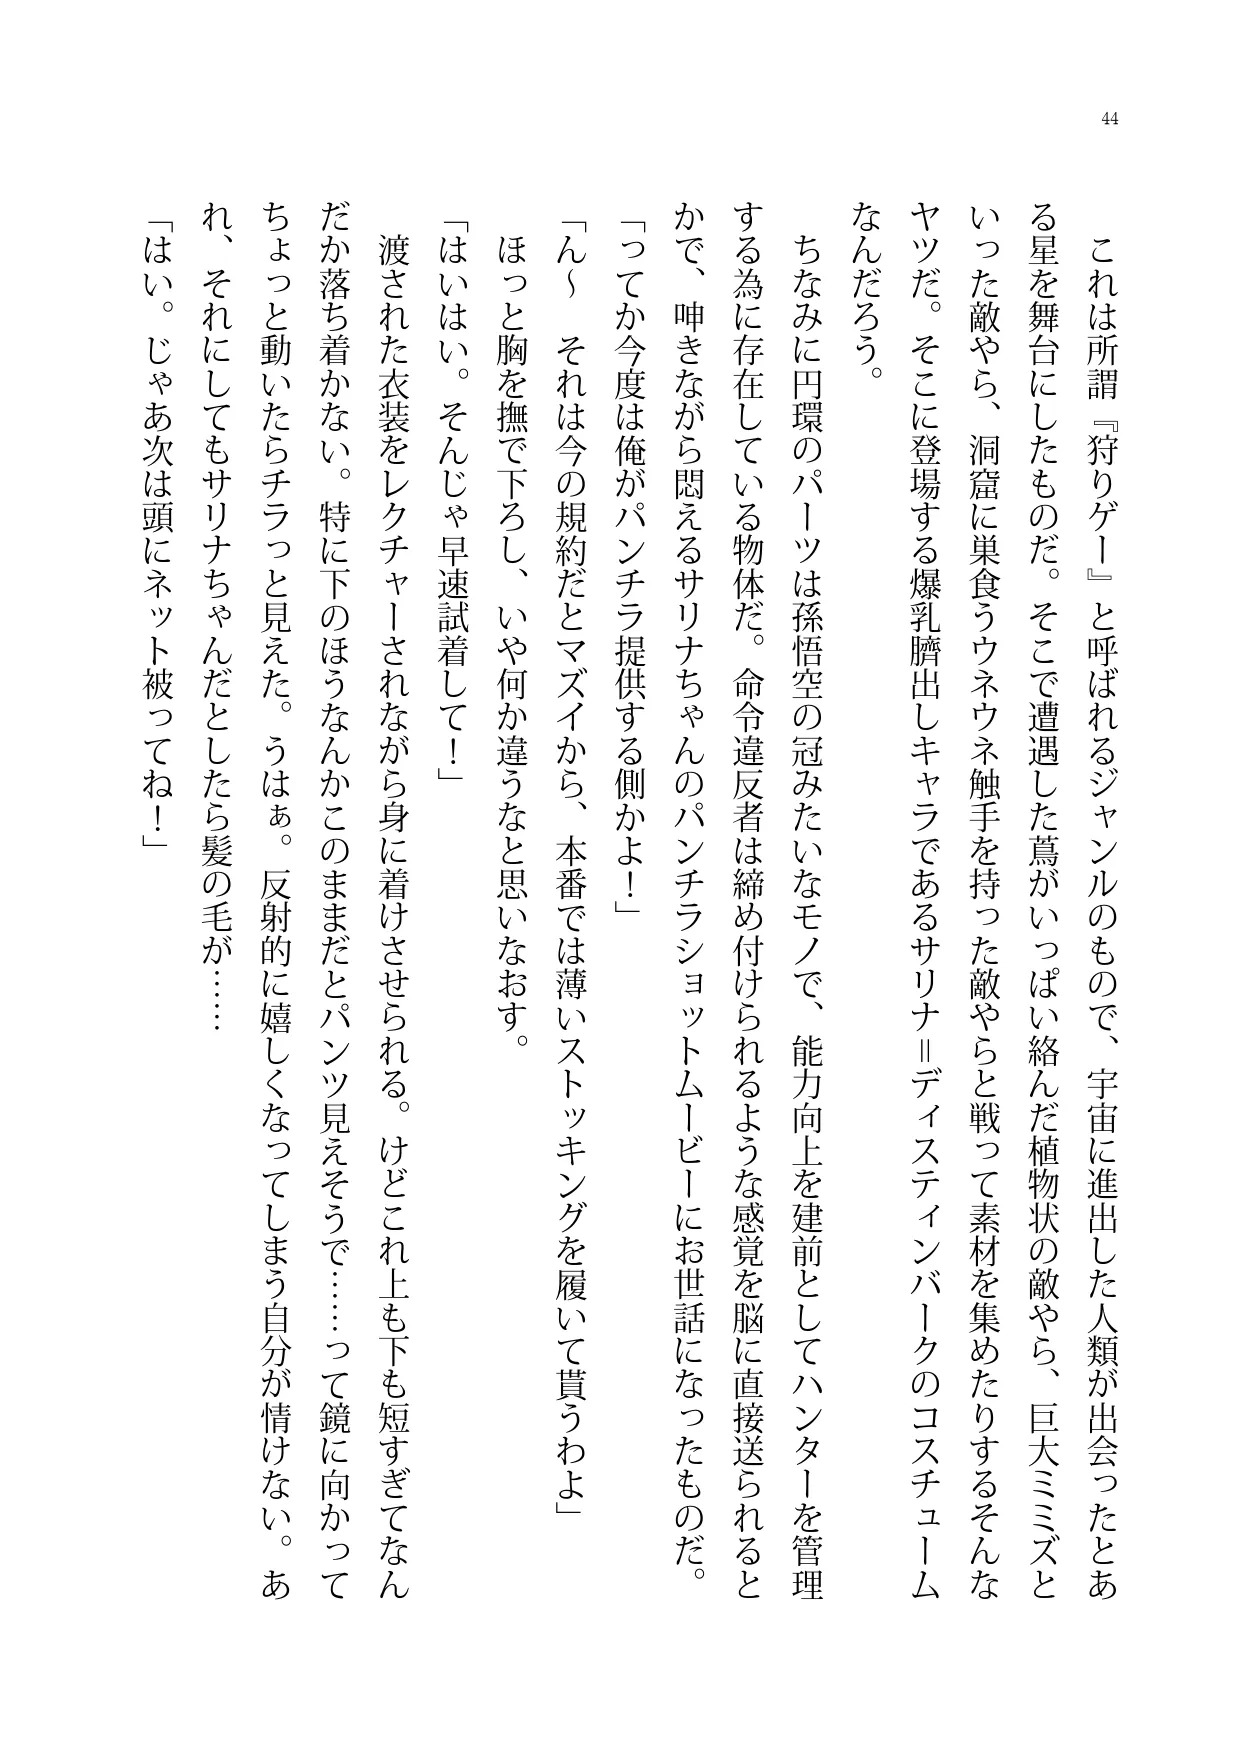 44
　これは所謂『狩りゲー』と呼ばれるジャンルのもので、宇宙に進出した人類が出会ったとあ
る星を舞台にしたものだ。そこで遭遇した蔦がいっぱい絡んだ植物状の敵やら、巨大ミミズと
いった敵やら、洞窟に巣食うウネウネ触手を持った敵やらと戦って素材を集めたりするそんな
ヤツだ。そこに登場する爆乳臍出しキャラであるサリナ＝ディスティンバークのコスチューム
なんだろう。
　ちなみに円環のパーツは孫悟空の冠みたいなモノで、能力向上を建前としてハンターを管理
する為に存在している物体だ。命令違反者は締め付けられるような感覚を脳に直接送られると
かで、呻きながら悶えるサリナちゃんのパンチラショットムービーにお世話になったものだ。
「ってか今度は俺がパンチラ提供する側かよ！」
「ん〜　それは今の規約だとマズイから、本番では薄いストッキングを履いて貰うわよ」
　ほっと胸を撫で下ろし、いや何か違うなと思いなおす。
「はいはい。そんじゃ早速試着して！」
　渡された衣装をレクチャーされながら身に着けさせられる。けどこれ上も下も短すぎてなん
だか落ち着かない。特に下のほうなんかこのままだとパンツ見えそうで……って鏡に向かって
ちょっと動いたらチラっと見えた。うはぁ。反射的に嬉しくなってしまう自分が情けない。あ
れ、それにしてもサリナちゃんだとしたら髪の毛が……
「はい。じゃあ次は頭にネット被ってね！」